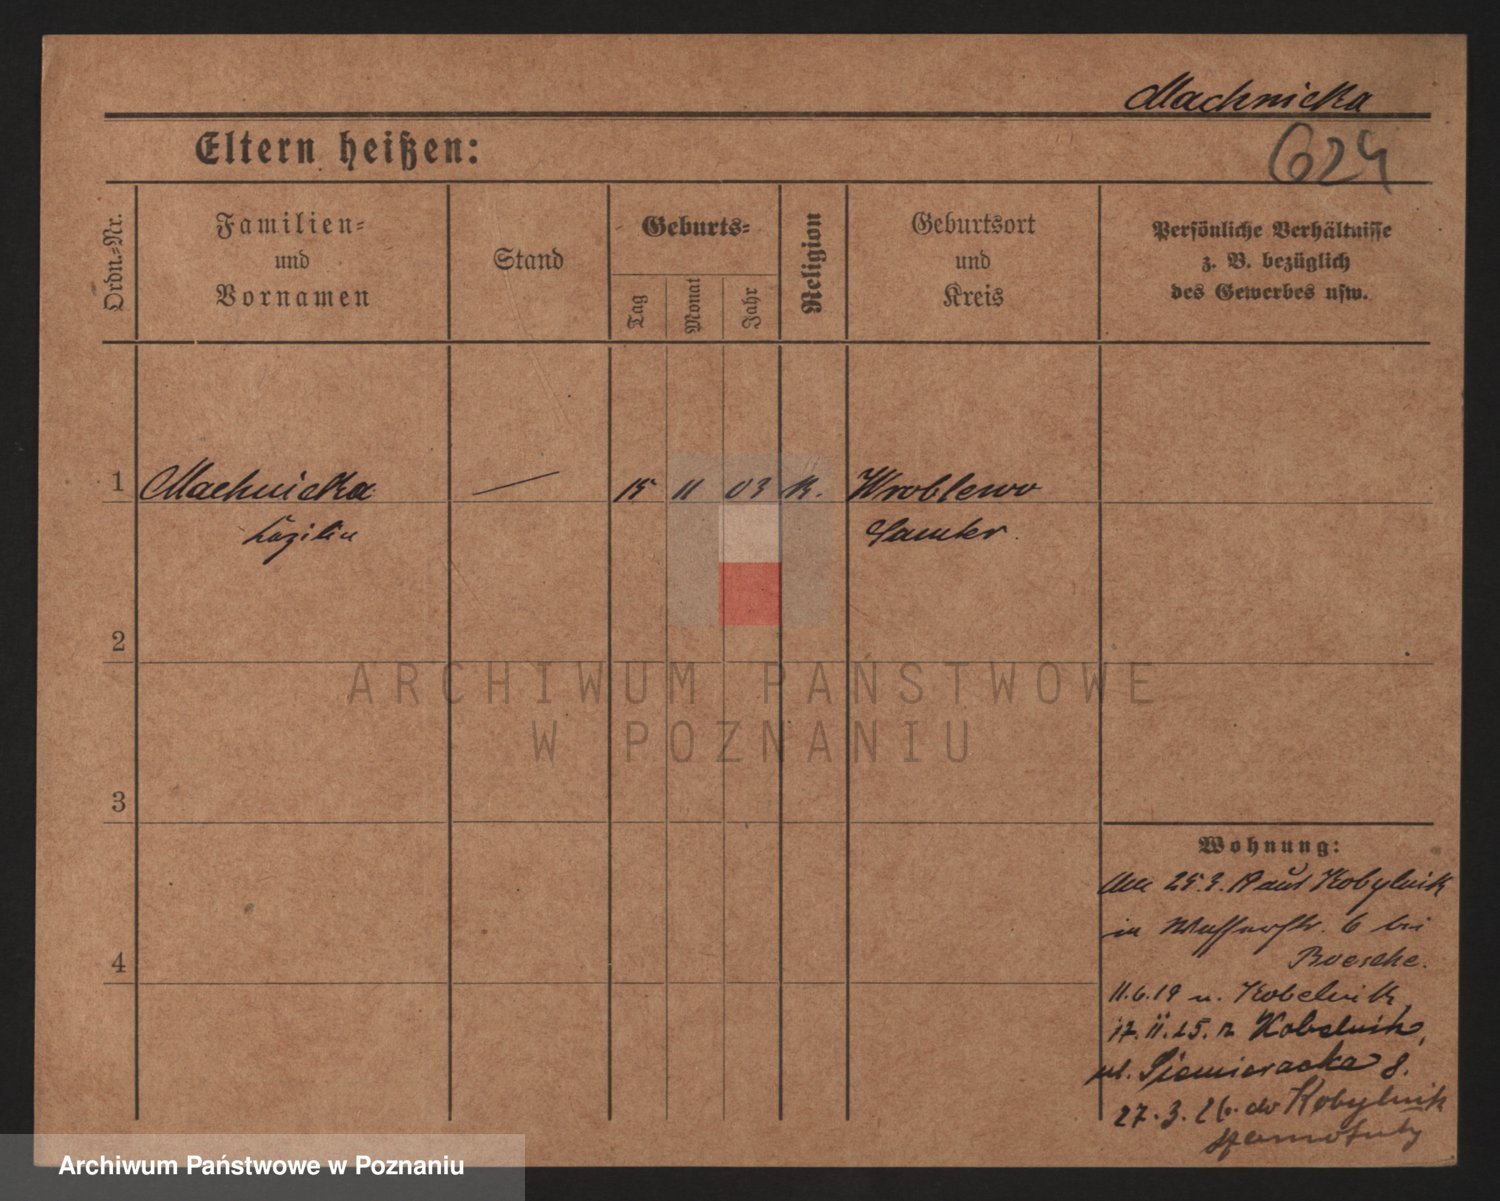 Machnicka
624
Eltern heißen:
Ordn.-Nr.
Familien-
und
Vornamen
Stand
Geburts-
Tag
Monat
Jahr
Religion
Geburtsort
und
Kreis
Persönliche Verhältnisse
z. B. bezüglich
des Gewerbes usw.
1 Machnicka — 15 11 03 k. Wroblewo
Cäzilie Samter.
2
ARCHIWUM PAŃSTWOWE
W POZNANIU
3
Wohnung:
Kobylnik
in Wasserstr. 6 bei
Boesche.
4
11.6.19 n. Kobelnik,
17.11.25. z Kobelnik,
ul. Siemieradzka 8.
27.3.26. do Kobylnik
Szamotuły
Archiwum Państwowe w Poznaniu